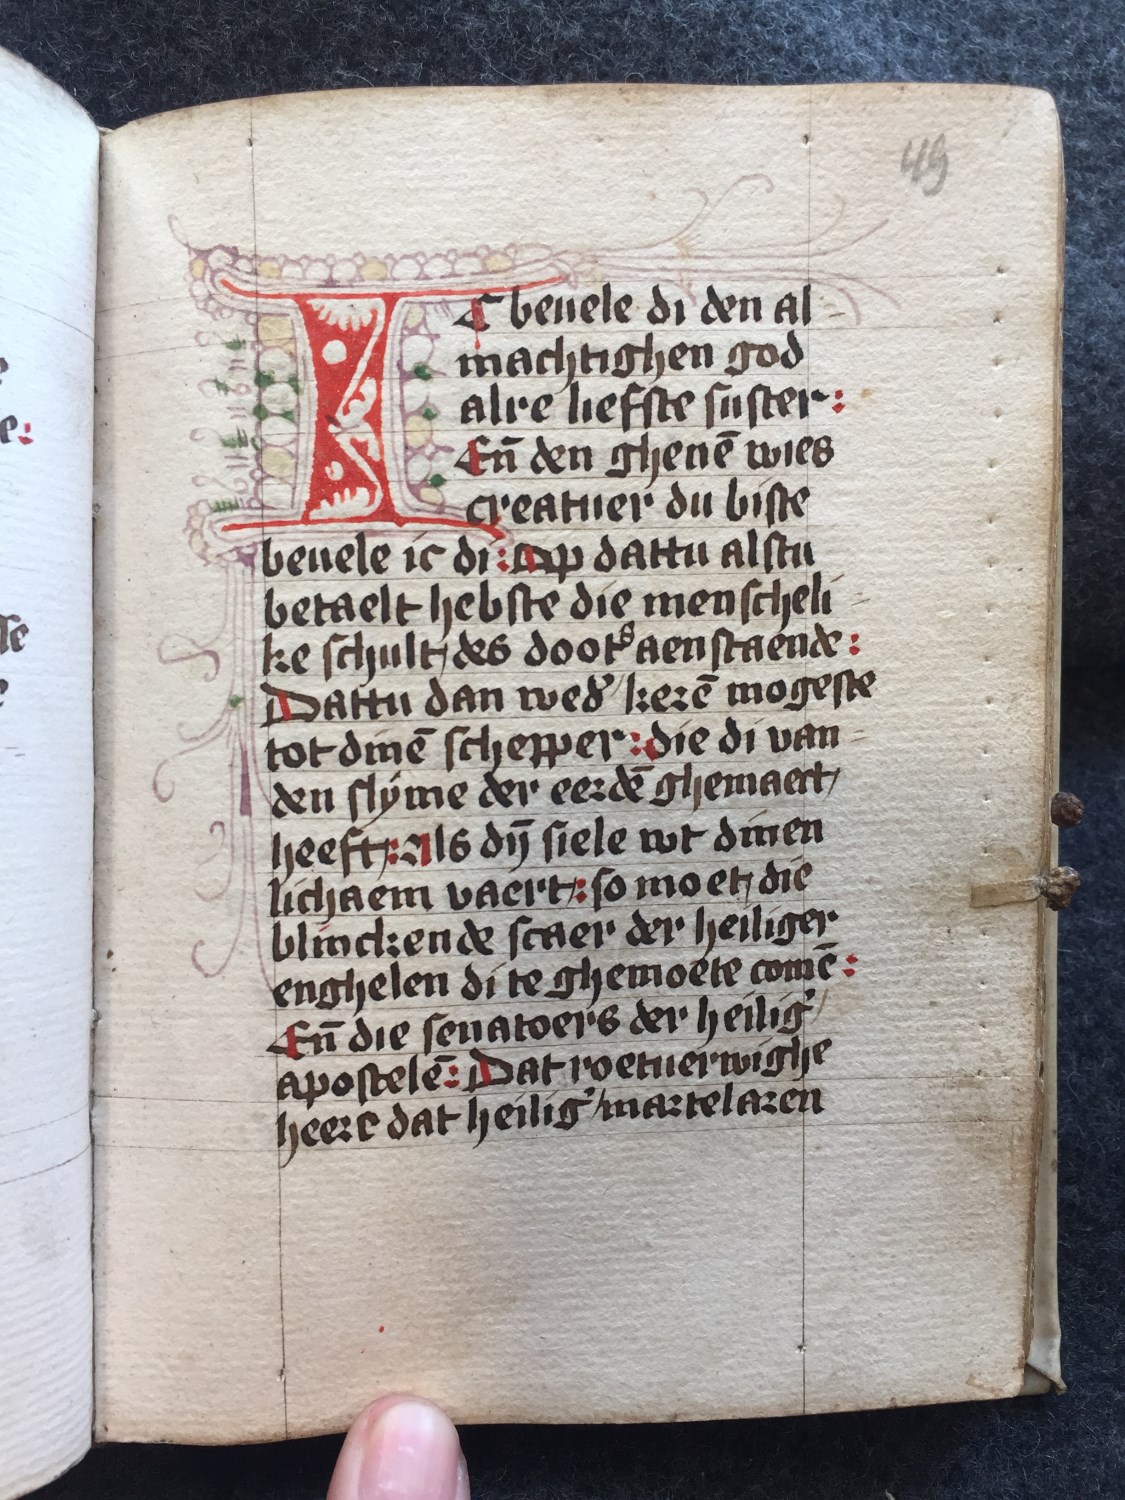 49
IC beuele di den al
machtighen god
alre liefste suster:
En̄ den ghenē wies
creatuer du biste
beuele ic di: Op dattu alstu
betaelt hebste die menscheli
ke schult, des doots aenstaende:
Dattu dan wed' kerē mogeste
tot dinē schepper: die di van
den slÿme der eerdē ghemaect
heeft: Als dÿ̄ siele wt dinen
lichaem vaert: so moet die
blinckende scaer der heiliger
enghelen di te ghemoete comē:
En̄ die senatoers der heilig'
apostelē: Dat roetuerwighe
heere dat heilig' martelaren
e: